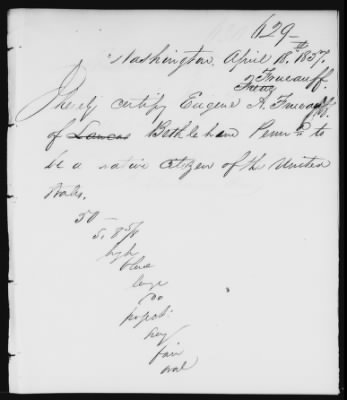 629 —
Washington April 18th 1857.
Frueauff.
I hereby certify Eugene A. Frueauff.
of Lancas Bethlehem Penna to
be a native citizen of the United
States.
50 —
5. 8 5/8
high
blue
large
do
gray
fair
oval